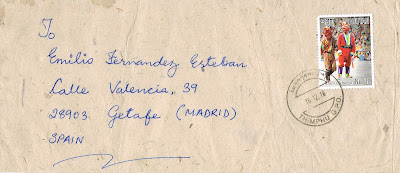 To
Emilio Fernandez Esteban
Calle Valencia, 39
28903 Getafe (MADRID)
SPAIN
THIMPHU G.P.O.